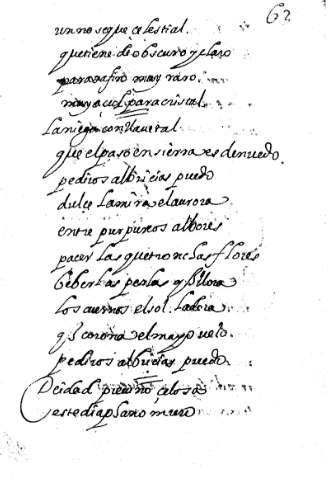 62
un no se que celestial
que tiene de obscuro y claro
para zafiro muy raro
muy açul para cristal
La niega con
que el paso en sierra es denuedo
pediros albricias puedo
dulce la mira el aurora
entre purpureos albores
pacer las que tronc las flores
beber las perlas y llora
los cuernos el sol la dora
q̃ corona el mayo
pediros albricias puedo
Deidad pues no çelosas
este diaphano muro